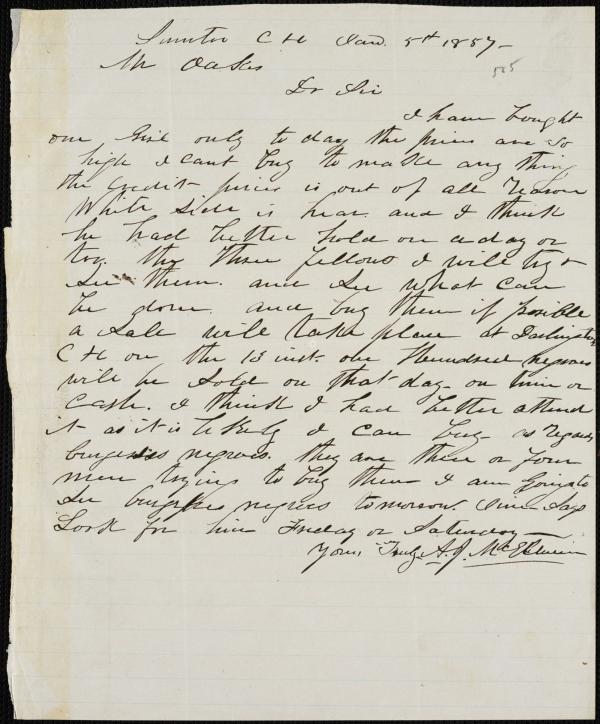 Sumter C H Jan. 5th 1857-
Mr Oakes
505
Dr Sir
I have bought
one Girl only to day the prices are so
high I cant buy to make any thing
the credit prices is out of all reason
White side is hear and I think
he had better hold on a day or
two. the three fellows I will try &
see them. and see what can
be done and buy them if posible
a sale will take place at Darlington
C H on the 13 inst. one Hundred negroes
will be sold on that day - on time or
cash. I think I had better attend
it as it is likely I can buy as regards
negroes. they are three or four
men trying to buy them I am going to
see negroes tomorrow. says
Look for him Friday or Saturday -
Yours Truly A. J. McElveen